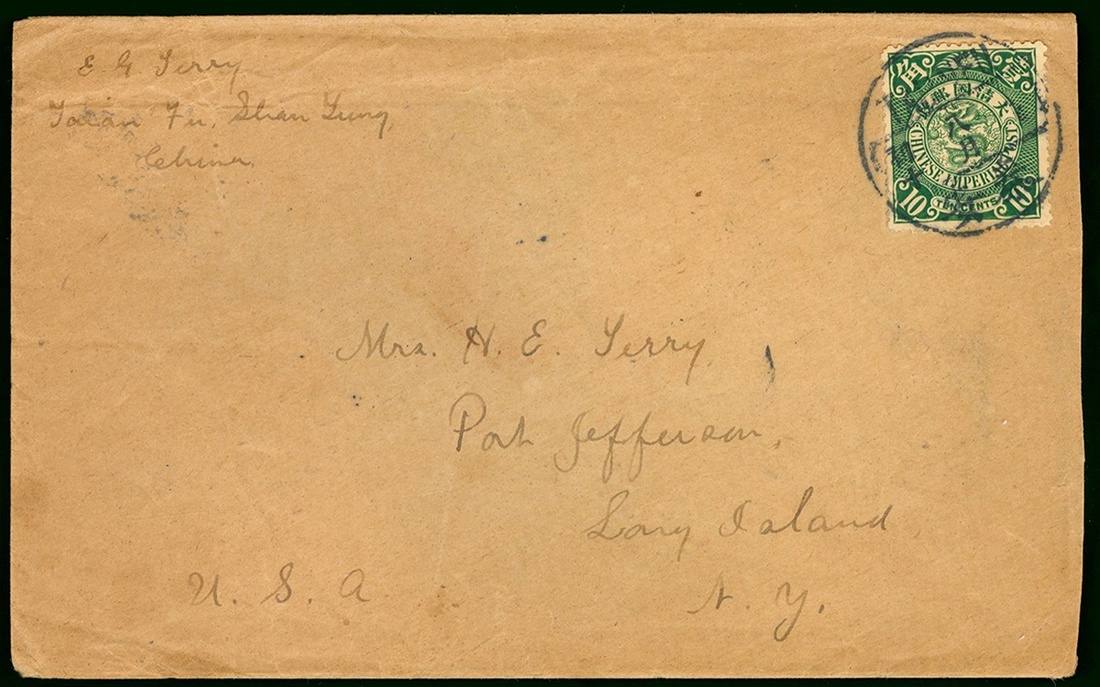 E G Terry
Taian Fu, Shan Tung,
China
角 壹
大清國郵政
CHINESE IMPERIAL POST
10 TEN CENTS 10
八月
Mrs. H. E. Terry
Port Jefferson,
Long Island
U. S. A N. Y.